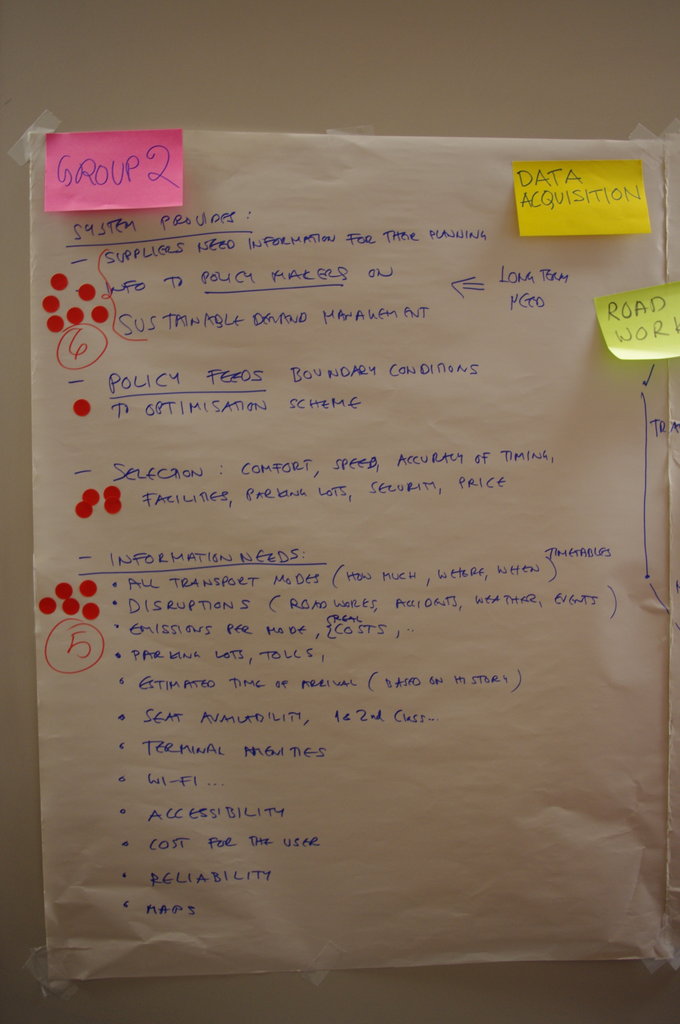 GROUP 2
DATA
ACQUISITION
SYSTEM PROVIDES:
- SUPPLIERS NEED INFORMATION FOR THEIR PLANNING
- INFO TO POLICY MAKERS ON
SUSTAINABLE DEMAND MANAGEMENT
⇐ LONG TERM
NEED
6
ROAD
WORK
- POLICY FEEDS BOUNDARY CONDITIONS
TO OPTIMISATION SCHEME
- SELECTION: COMFORT, SPEED, ACCURACY OF TIMING,
FACILITIES, PARKING LOTS, SECURITY, PRICE
- INFORMATION NEEDS:
• ALL TRANSPORT MODES (HOW MUCH, WHERE, WHEN) TIMETABLES
• DISRUPTIONS (ROAD WORKS, ACCIDENTS, WEATHER, EVENTS)
• EMISSIONS PER MODE, {REAL COSTS, ..
5
• PARKING LOTS, TOLLS,
• ESTIMATED TIME OF ARRIVAL (BASED ON HISTORY)
• SEAT AVAILABILITY, 1 & 2nd Class...
• TERMINAL AMENITIES
• WI-FI ...
• ACCESSIBILITY
• COST FOR THE USER
• RELIABILITY
• MAPS